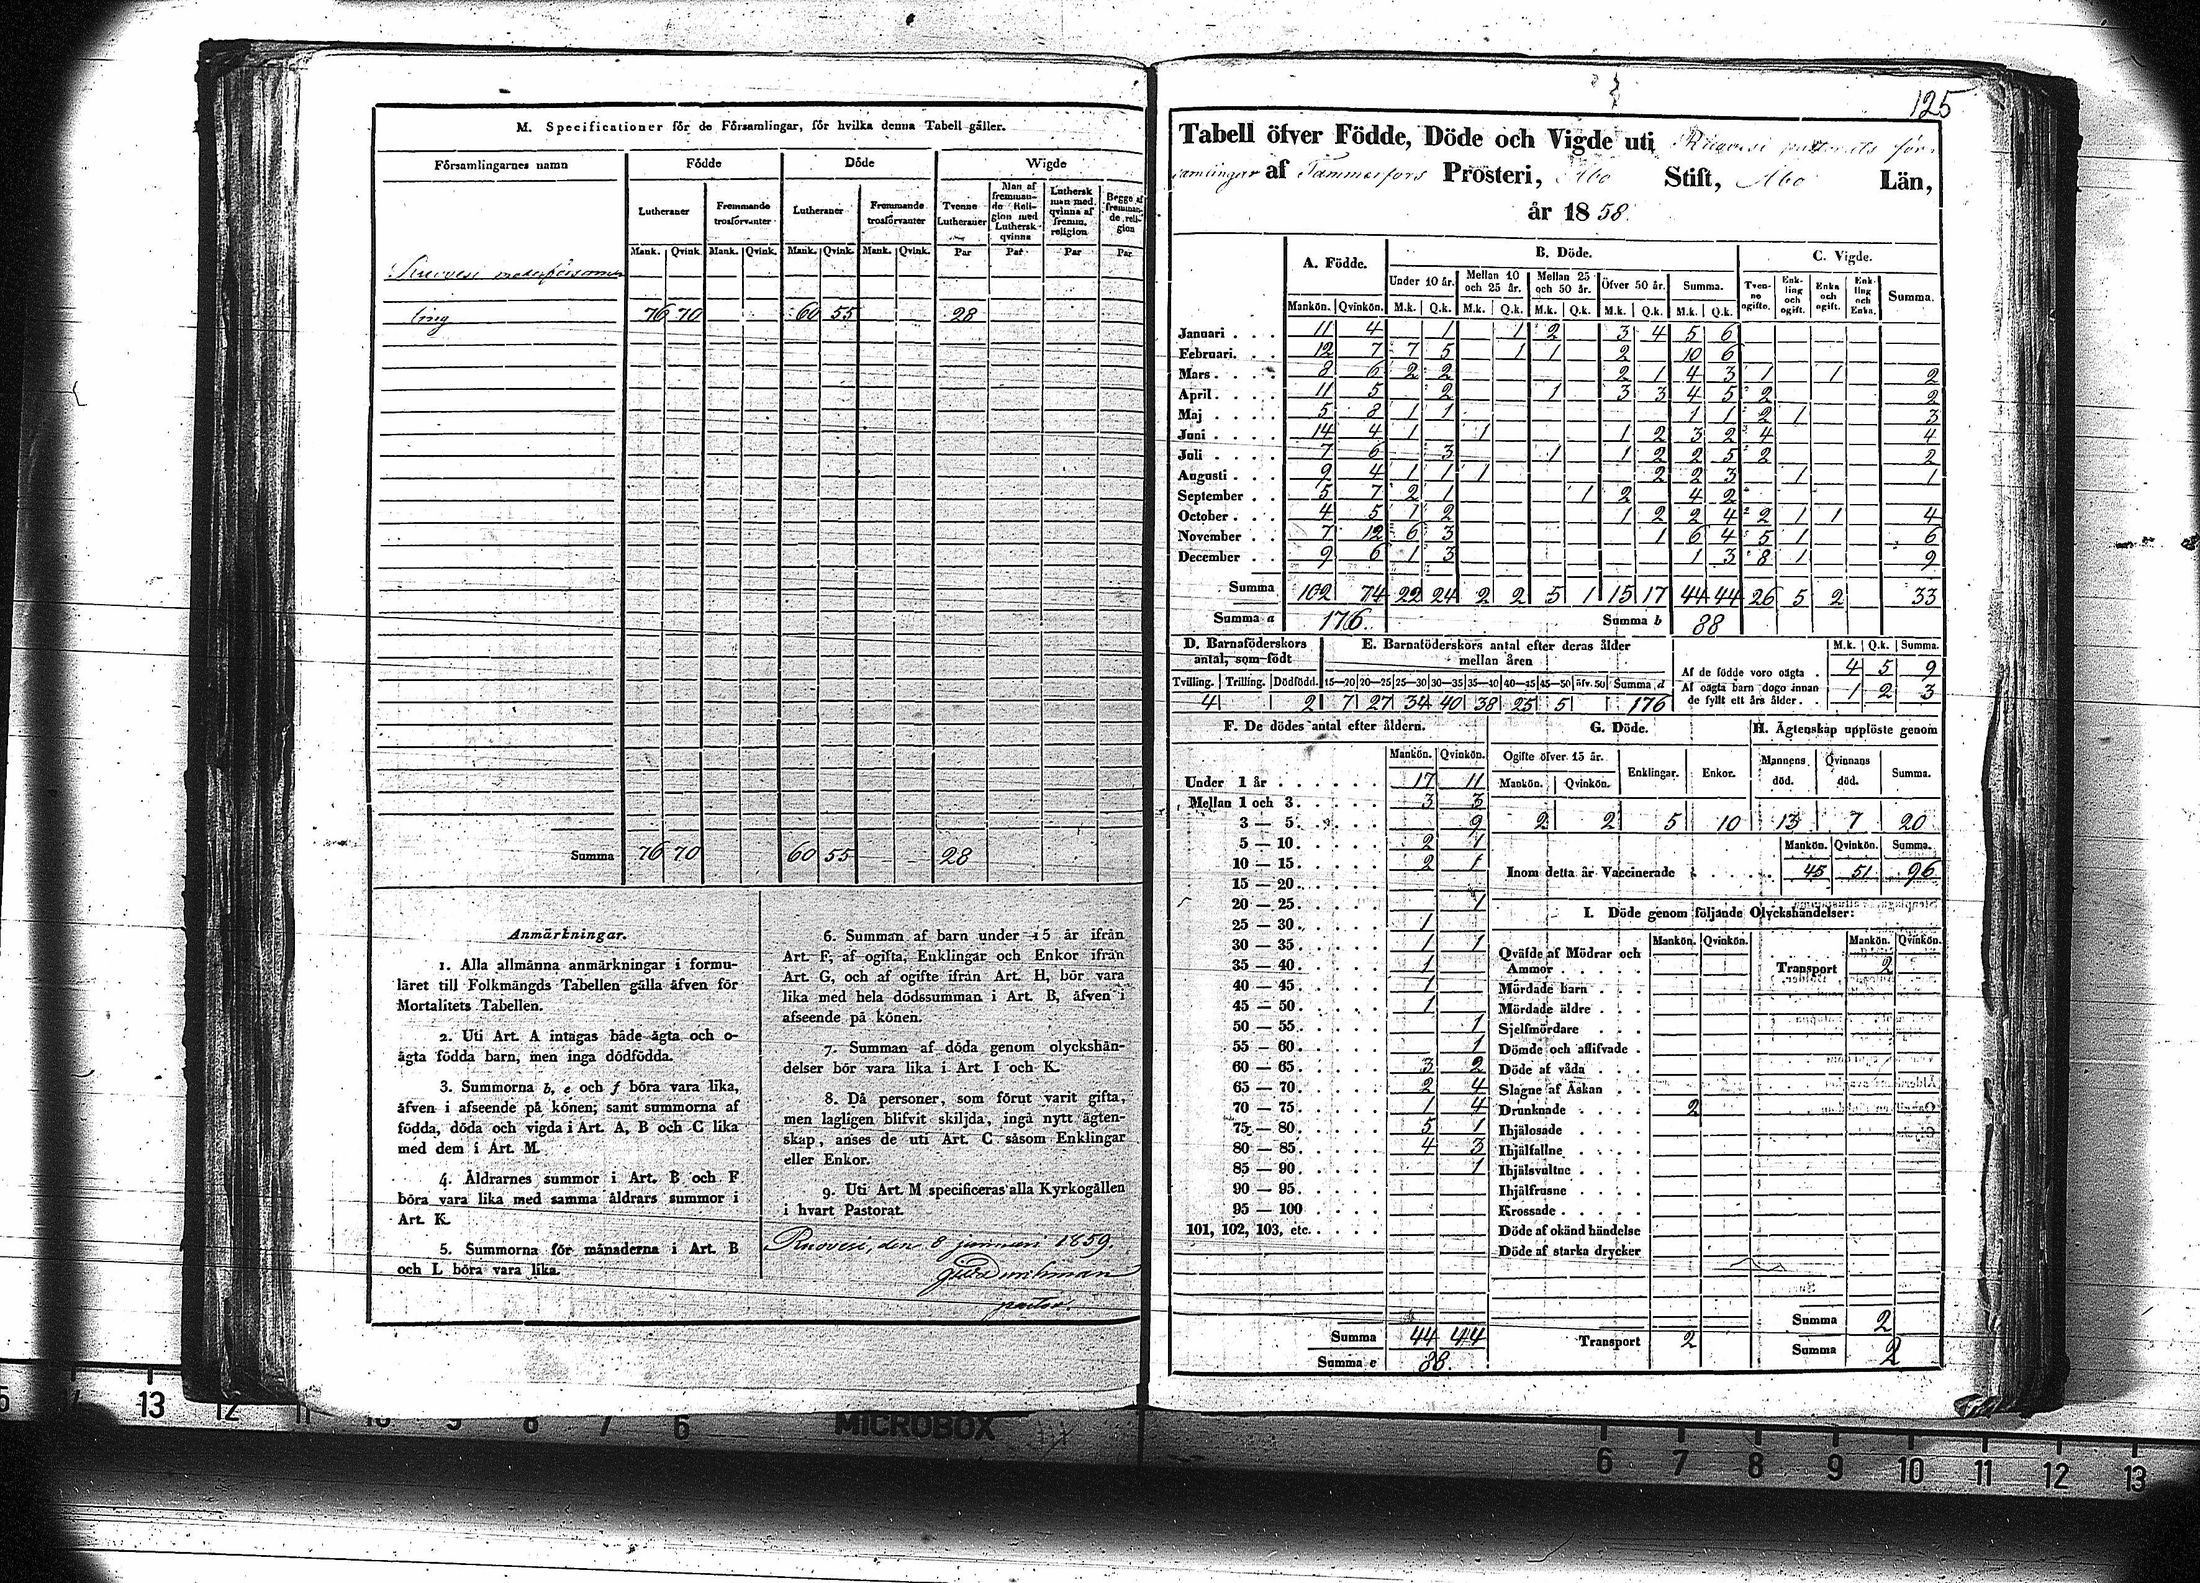 M. Specificationer för de Församlingar, för hvilka denna Tabell gäller.
Församlingarnes namn | Födde | Döde | Wigde
Lutheraner | Fremmande trosförvanter | Lutheraner | Fremmande trosförvanter | Tvenne Lutheraner | Man af fremmande Religion med Luthersk qvinna | Luthersk man med qvinna af fremm. religion | Begge af fremmande religion
Mank. | Qvink. | Mank. | Qvink. | Mank. | Qvink. | Mank. | Qvink. | Par | Par | Par | Par
Ruovesi moderförsam
ling 76 70 60 55 28
Summa 76 70 60 55 28
Anmärkningar.
1. Alla allmänna anmärkningar i formu-
läret till Folkmängds Tabellen gälla äfven för
Mortalitets Tabellen.
2. Uti Art. A intagas både ägta och o-
ägta födda barn, men inga dödfödda.
3. Summorna b, e och f böra vara lika,
äfven i afseende på könen; samt summorna af
födda, döda och vigda i Art. A, B och C lika
med dem i Art. M.
4. Åldrarnes summor i Art. B och F
böra vara lika med samma åldrars summor i
Art. K.
5. Summorna för månaderna i Art. B
och L böra vara lika.
6. Summan af barn under 15 år ifrån
Art. F; af ogifta, Enklingar och Enkor ifrån
Art. G, och af ogifte ifrån Art. H, bör vara
lika med hela dödssumman i Art. B, äfven i
afseende på könen.
7. Summan af döda genom olyckshän-
delser bör vara lika i Art. I och K.
8. Då personer, som förut varit gifta,
men lagligen blifvit skiljda, ingå nytt ägten-
skap, anses de uti Art. C såsom Enklingar
eller Enkor.
9. Uti Art. M specificeras alla Kyrkogällen
i hvart Pastorat.
Ruovesi, den 8 januari 1859.
pastor.
125
Tabell öfver Födde, Döde och Vigde uti Ruovesi pastorats för-
samlingar af Tammerfors Prosteri, Åbo Stift, Åbo Län,
år 1858.
A. Födde. | B. Döde. | C. Vigde.
Under 10 år. | Mellan 10 och 25 år. | Mellan 25 och 50 år. | Öfver 50 år. | Summa. | Tvenne ogifte. | Enkling och ogift. | Enka och ogift. | Enkling och Enka. | Summa.
Mankön. | Qvinkön. | M.k. | Q.k. | M.k. | Q.k. | M.k. | Q.k. | M.k. | Q.k. | M.k. | Q.k.
Januari . . . 11 4 1 1 2 3 4 5 6
Februari. . . 12 7 7 5 1 1 2 10 6
Mars . . . . 8 6 2 2 2 1 4 3 1 1 2
April . . . . 11 5 2 1 3 3 4 5 2 2
Maj . . . . 5 8 1 1 1 1 2 1 3
Juni . . . . 14 4 1 1 1 2 3 2 4 4
Juli . . . . 7 6 3 1 1 2 2 5 2 2
Augusti . . . 9 4 1 1 1 2 2 3 1 1
September . . 5 7 2 1 1 2 4 2
October . . . 4 5 1 2 1 2 2 4 2 1 1 4
November . . 7 12 6 3 1 6 4 5 1 6
December . . 9 6 1 3 1 3 8 1 9
Summa 102 74 22 24 2 2 5 1 15 17 44 44 26 5 2 33
Summa a 176. Summa b 88
D. Barnaföderskors antal, som födt | E. Barnaföderskors antal efter deras ålder mellan åren | M.k. | Q.k. | Summa.
Af de födde voro oägta . 4 5 9
Tvilling. | Trilling. | Dödfödd. | 15—20 | 20—25 | 25—30 | 30—35 | 35—40 | 40—45 | 45—50 | öfv. 50 | Summa d
Af oägta barn dogo innan de fyllt ett års ålder . . 1 2 3
4 2 7 27 34 40 38 25 5 176
F. De dödes antal efter åldern. | G. Döde. | H. Ägtenskap upplöste genom
Mankön. | Qvinkön.
Under 1 år . . . . . . 17 11
Mellan 1 och 3. . . . . . 3 3
3 — 5. . . . . . 9
5 — 10. . . . . . 2 1
10 — 15. . . . . . 2 1
15 — 20. . . . . .
20 — 25. . . . . . 1
25 — 30. . . . . . 1
30 — 35. . . . . . 1 1
35 — 40. . . . . . 1
40 — 45. . . . . . 1
45 — 50. . . . . . 1
50 — 55. . . . . . 1
55 — 60. . . . . . 1
60 — 65. . . . . . 3 2
65 — 70. . . . . . 2 4
70 — 75. . . . . . 1 4
75 — 80. . . . . . 5 1
80 — 85. . . . . . 4 3
85 — 90. . . . . . 1
90 — 95. . . . . .
95 — 100 . . . . .
101, 102, 103, etc. . . . .
Summa 44 44
Summa e 88.
Ogifte öfver 15 år. | Enklingar. | Enkor. | Mannens död. | Qvinnans död. | Summa.
Mankön. | Qvinkön.
2 2 5 10 13 7 20
Mankön. | Qvinkön. | Summa.
Inom detta år Vaccinerade . . . . . . 45 51 96
I. Döde genom följande Olyckshändelser:
Mankön. | Qvinkön. | Mankön. | Qvinkön.
Qväfde af Mödrar och
Ammor . . . . . Transport 2
Mördade barn . . .
Mördade äldre . . .
Sjelfmördare . . .
Dömde och aflifvade .
Döde af våda . . .
Slagne af Åskan . .
Drunknade . . . . 2
Ihjälosade . . . .
Ihjälfallne . . . .
Ihjälsvultne . . . .
Ihjälfrusne . . . .
Krossade . . . . .
Döde af okänd händelse
Döde af starka drycker
Summa 2
Transport 2 Summa 2
13 12 11 10 9 8 7 6 MICROBOX 6 7 8 9 10 11 12 13